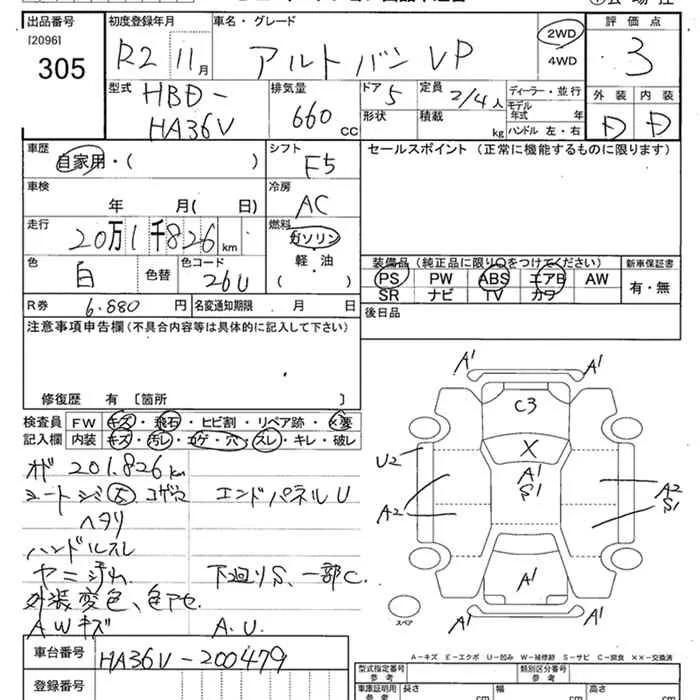 出品番号 初度登録年月 車名・グレード 評価点
[2096]
305 R2 11月 アルトバン VP 2WD 4WD 3
型式 HBD-HA36V 排気量 660 cc ドア 5 定員 2/4人 ディーラー・並行 外装 内装
形状 積載 kg モデル年式 年 D D
ハンドル 左・右
車歴 自家用・( ) シフト F5 セールスポイント (正常に機能するものに限ります)
車検 年 月( 日) 冷房 AC
走行 20万1千826km 燃料 ガソリン
軽・油
色 白 色替 色コード 26U ( )
装備品(純正品に限り○をつけてください) 新車保証書
PS PW ABS エアB AW 有・無
SR ナビ TV カワ
R券 6.880円 名変通知期限 月 日 後日品
注意事項申告欄(不具合内容等は具体的に記入して下さい)
修復歴 有 [箇所
検査員 FW キズ・飛石・ヒビ割・リペア跡・×要
記入欄 内装 キズ・汚レ・コゲ・穴・スレ・キレ・破レ
201.826km
エンドパネルU
ヘタリ
ハンドルスレ
ヤニ汚れ 下廻りS、一部C.
外装変色、色アセ
A.Wキズ A.U.
A1 A1
C3
X
U2 A1
S1
A2 A2
S1
A1
スペア
A1 A1
A-キズ E-エクボ U-凹み W-補修跡 S-サビ C-腐食 ××-交換済
車台番号 HA36V-200479
登録番号
型式指定番号 参考 類別区分番号 参考
車庫証明用 参考 長さ cm 幅 cm 高さ cm